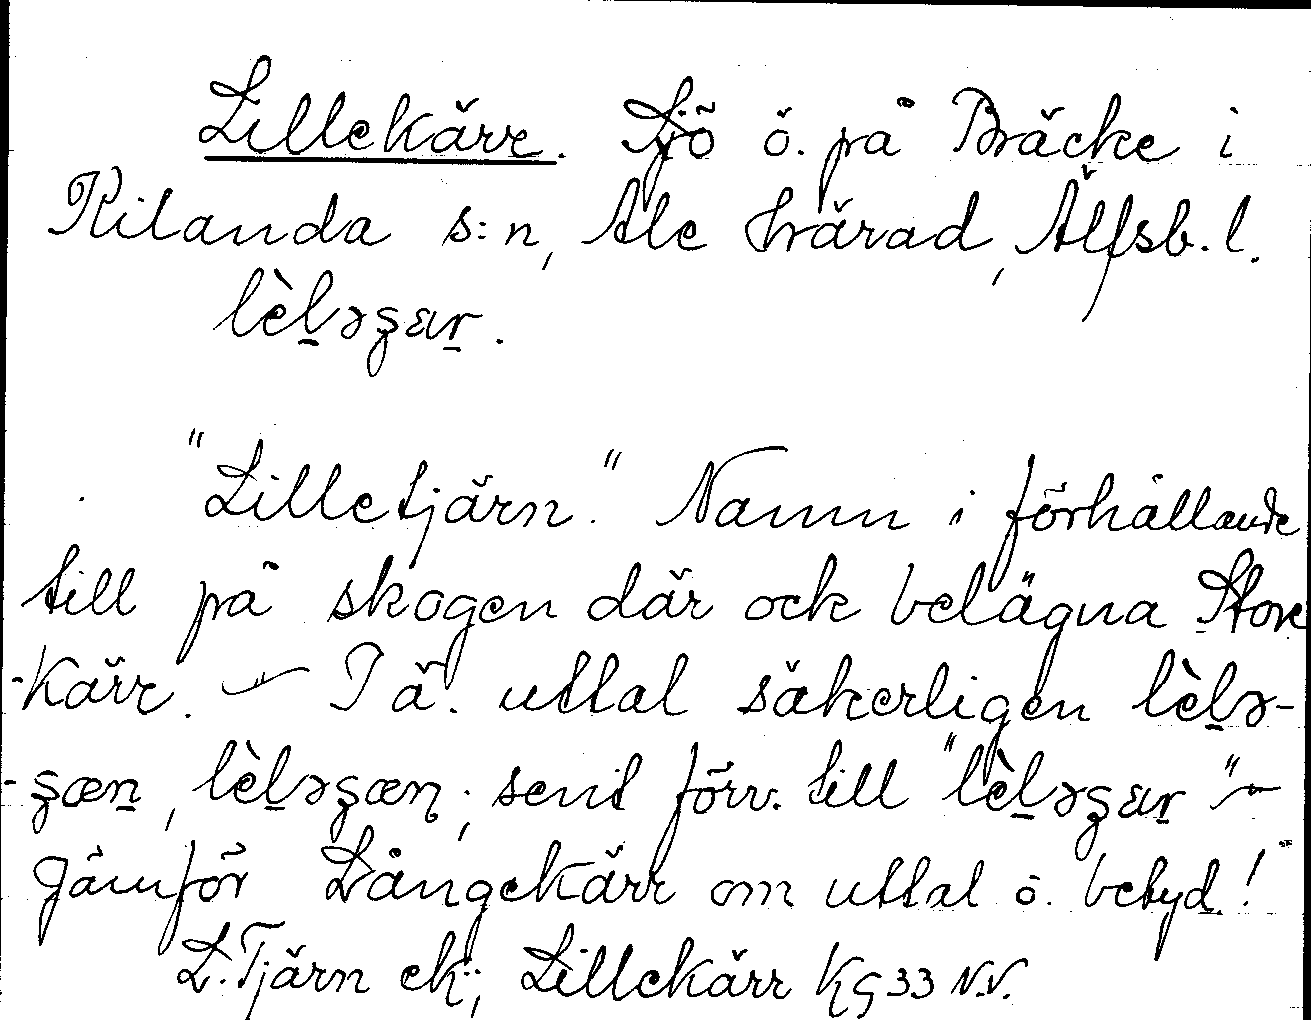 Lillekärr. Sjö ö. på Bräcke i
Kilanda s:n, Ale härad, Älfsb. l.
lèləʂɛr.
"Lilletjärn." Namn i förhållande
till på skogen där ock belägna Store
-kärr. — I ä. uttal säkerligen lèlə-
-ʂæn, lèləʂæn; sent förv. till "lèləʂɛr" —
Jämför Långekärr om uttal o. betyd.!
L. Tjärn ek.; Lillekärr KG 33 N.V.